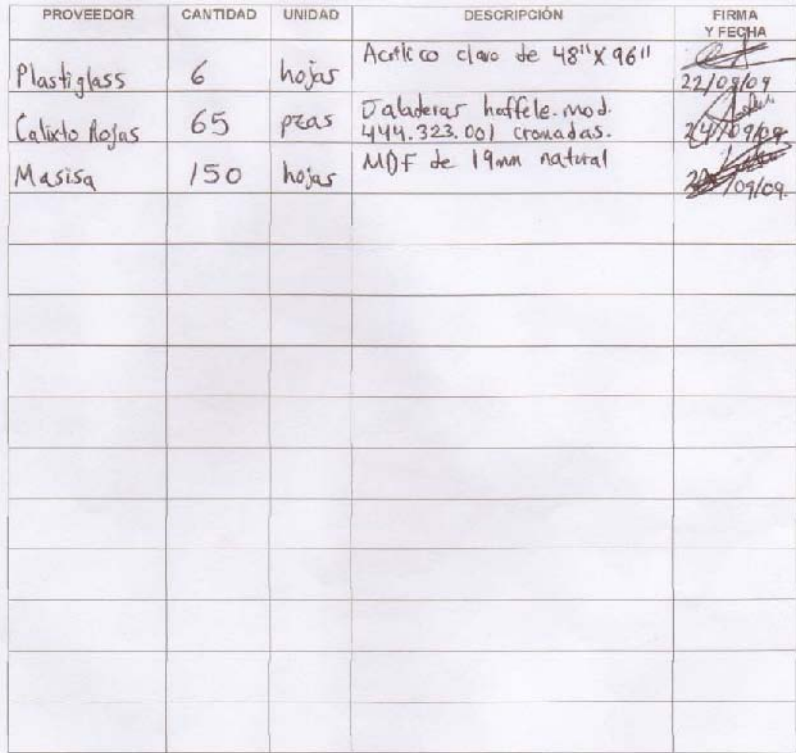 PROVEEDOR CANTIDAD UNIDAD DESCRIPCIÓN FIRMA Y FECHA
Plastiglass 6 hojas Acrilico claro de 48" x 96" 22/09/09
Calixto Rojas 65 pzas Jaladeras haffele. mod.
444.323.001 cromadas. 24/09/09
Masisa 150 hojas MDF de 19mm natural /09/09.